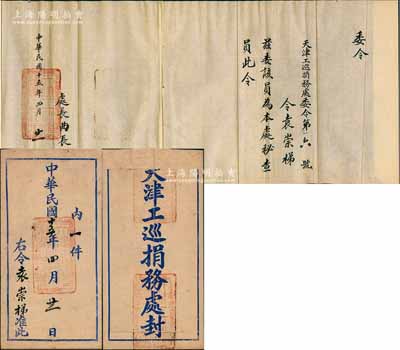 上海陽明拍賣
委令
天津工巡捐務處委令第六號
令袁崇梯
茲委該員為本處秘查
員此令
處長曲長
中華民國十五年四月廿一
天津工巡捐務處封
內一件
中華民國十五年四月廿一日
右令袁崇梯准此